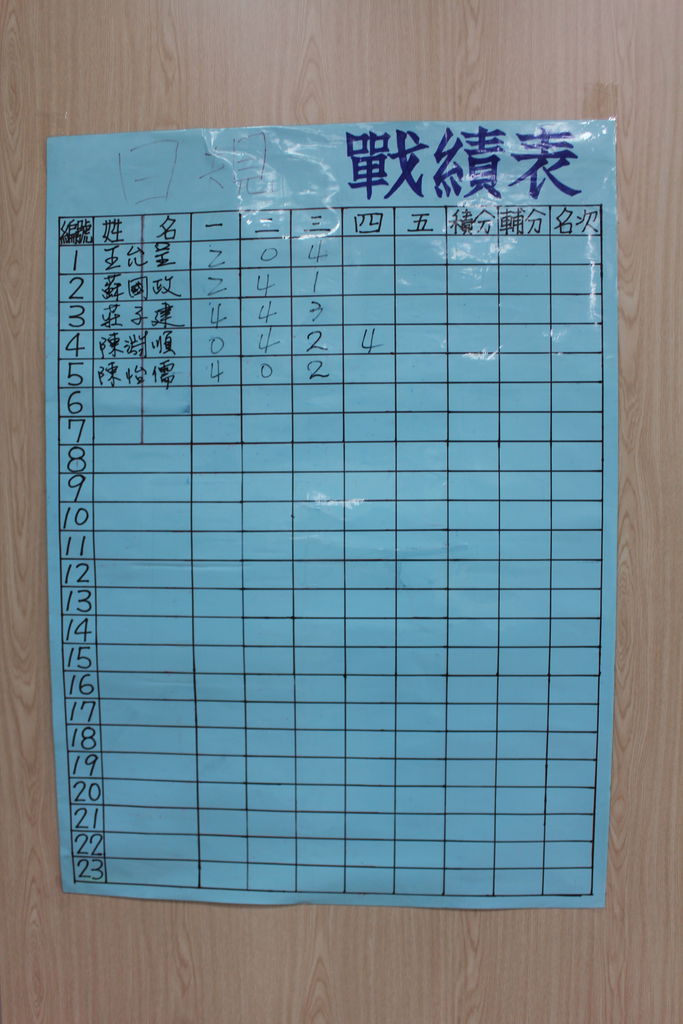 戰績表
編號 姓名 一 二 三 四 五 積分 輔分 名次
1 王 2 0 4
2 蘇國政 2 4 1
3 莊子建 4 4 3
4 陳淵順 0 4 2 4
5 陳怡儒 4 0 2
6
7
8
9
10
11
12
13
14
15
16
17
18
19
20
21
22
23